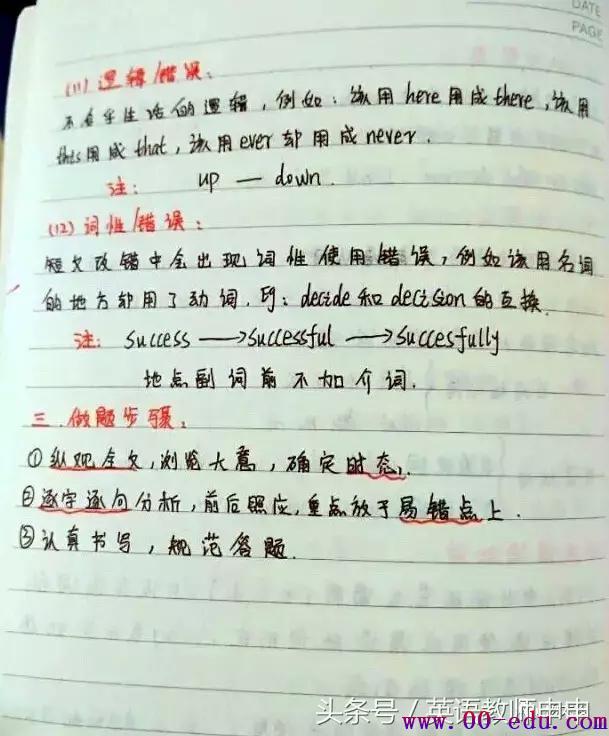 DATE
PAGE
(11) 逻辑错误：
不合乎生活的逻辑，例如：该用here用成there，该用
this用成that，该用ever却用成never.
注： up — down.
(12) 词性错误：
短文改错中会出现词性使用错误，例如该用名词
的地方却用了动词. 即：decide和decision的互换.
注： success →successful →succesfully
地点副词前不加介词.
三. 做题步骤：
①纵观全文，浏览大意，确定时态；
②逐字逐句分析，前后照应，重点放于易错点上.
③认真书写，规范答题.
头条号 / 英语教师冉冉
www.00-edu.com